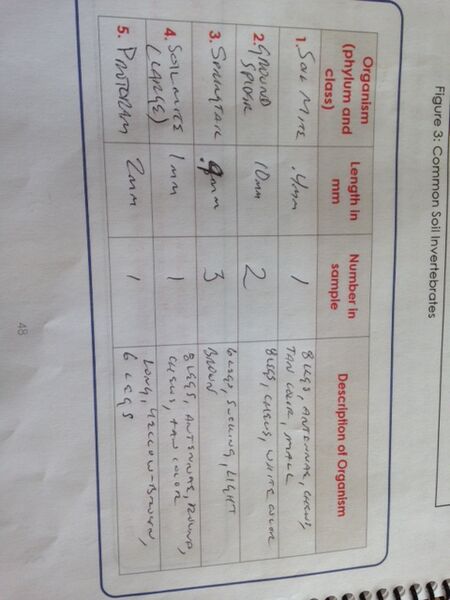 Figure 3: Common Soil Invertebrates
Organism (phylum and class) Length in mm Number in sample Description of Organism
1. SOIL MITE .4mm 1 8 LEGS, ANTENNAE, CHEWS,
TAN COLOR, SMALL
2. GROUND SPIDER 10mm 2 8 LEGS, CHEWS, WHITE COLOR
3. SPRINGTAIL .9mm 3 6 LEGS, SUCKING, LIGHT
BROWN
4. SOIL MITES (LARGE) 1mm 1 8 LEGS, ANTENNAE, ROUND,
CHEWS, TAN COLOR
5. PROTURAN 2mm 1 LONG, YELLOW-BROWN,
6 LEGS
48